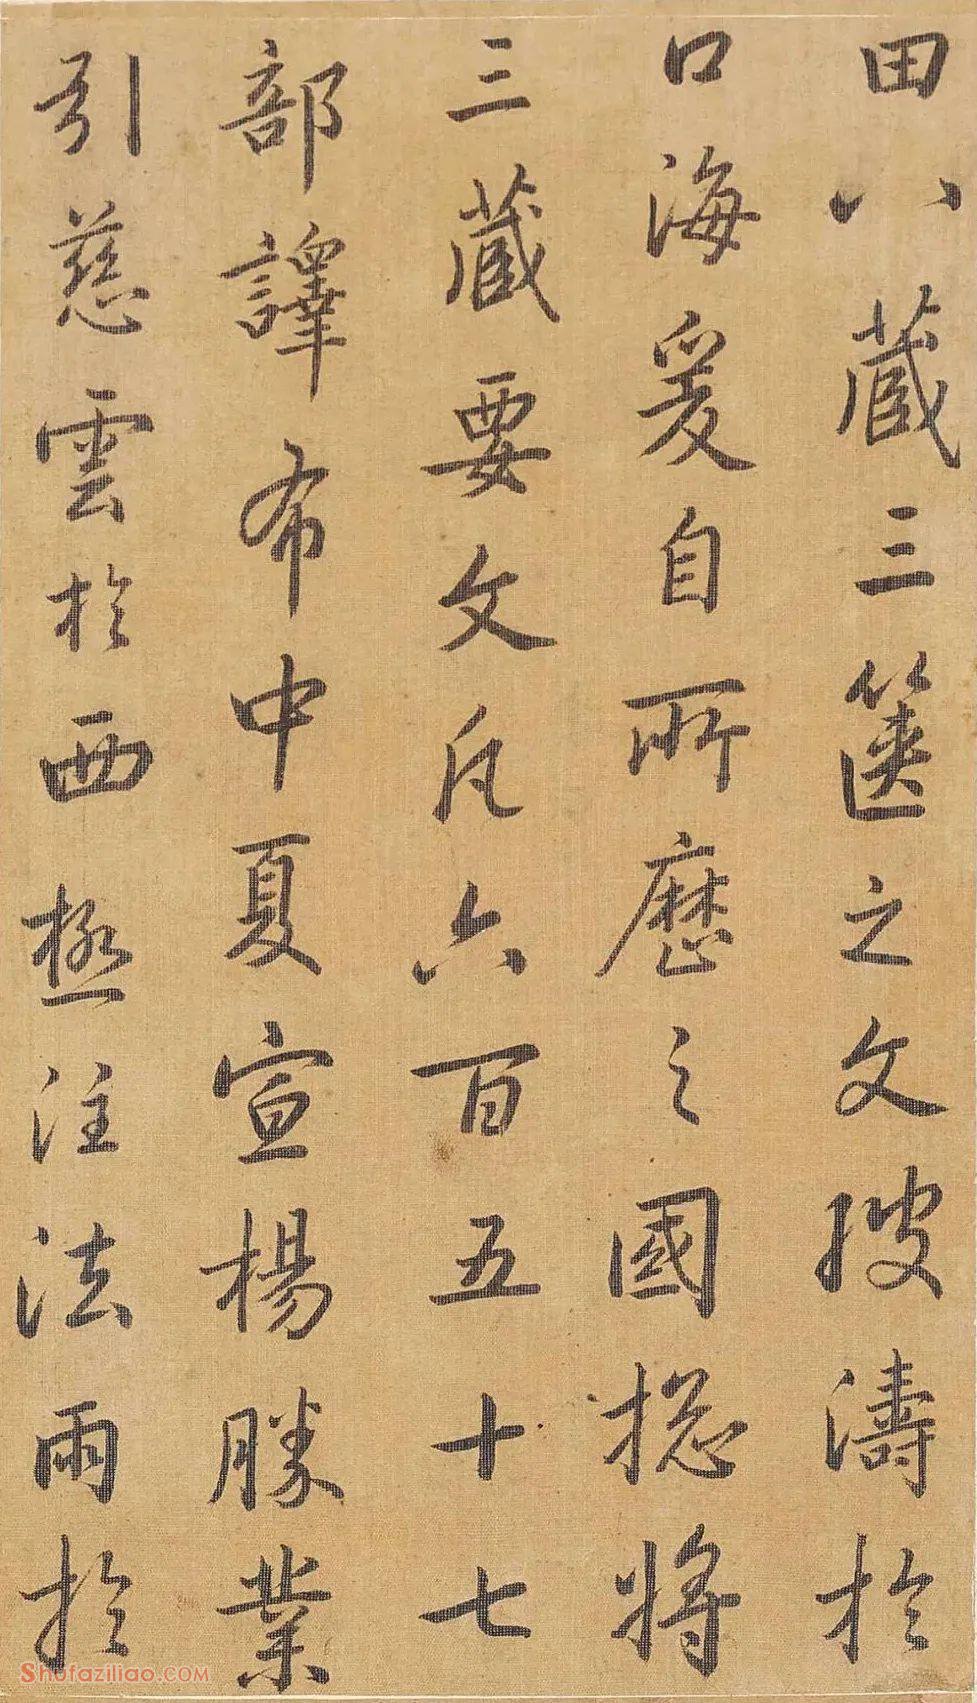 田八藏三箧之文搜濤於
口海爰自所歷之國揔將
三藏要文凡六百五十七
部譯布中夏宣楊勝業
引慈雲於西極注法雨於
Shufaziliao.COM